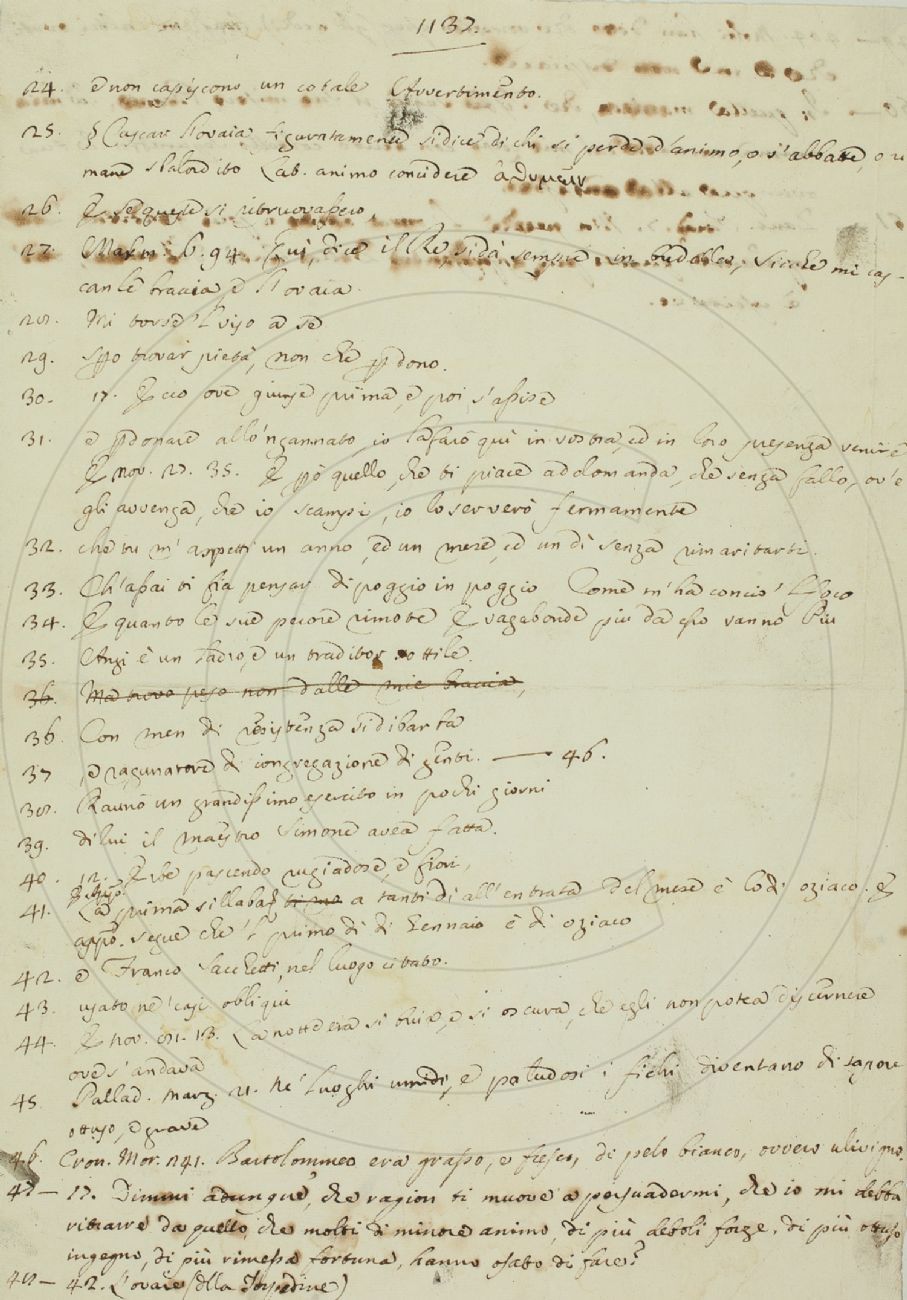 1137.
24. e non capiscono un cotale Avvertimento.
25. § Cascar l'ovaia figuratamente si dice di chi si perde d'animo, o s'abbatte, o ri
mane sbalordito Lat. animo concidere ἀθυμεῖν
26. E se quese si ritruovassero,
27. Malm. 6. 94. Qui, dice il Re, si dà sempre in budella, sicchè mi cas-
can le braccia e l'ovaia.
28. Mi torse 'l viso a se
29. Spo trovar pietà, non che p̄dono.
30. 17. E ciò ove giunse prima, e poi s'assise
31. e p̄donare allo 'ngannato io lascerò qui in vostra, ed in loro presenza venire
E nov. 27. 35. E p̄ò quello, che ti piace addomanda, che senza fallo, ov'e
gli avvenga, che io scampi, io lo serverò fermamente
32. che tu m'aspetti un anno, ed un mese, ed un dì senza rimaritarti.
33. Ch'assai ti fia pensar di poggio in poggio Come m'ha concio 'l foco
34. E quanto le sue pecore rimote E vagabonde più da esso vanno Più
35. Anzi è un ladro, e un traditor sottile.
36. Ma trovo peso non dalle mie braccia,
36. Con men di resistenza si dibarba
37 e ragunatore di congregazione di genti. — 46.
38. Raunò un grandissimo esercito in pochi giorni
39. di lui il maestro Simone avea fatta.
40. 12. Erbe pascendo rugiadose, e fiori,
41. La prima sillaba a tanti dì all'entrata del mese è lo dì oziaco. E
appo. segue che 'l primo dì di Gennaio è dì oziaco
42. e Franco Sacchetti, nel luogo citato.
43. usato ne' casi obliqui
44. E nov. 81. 13. La notte era sì buia, e sì oscura, che egli non potea discernere
ove s'andava
45. Pallad. Marz. 21. Ne' luoghi umidi, e paludosi i fichi diventano di sapore
ottuso, e grave
46. Cron. Mor. 241. Bartolommeo era grasso, e fresco, di pelo bianco, ovvero ulivigno.
47 — 17. Dimmi adunque, che ragion ti muove a persuadermi, che io mi debba
ritrarre da quello, che molti di minore animo, di più deboli forze, di più ottuso
ingegno, di più rimessa fortuna, hanno osato di fare?
48 — 42. L'ovaie (della